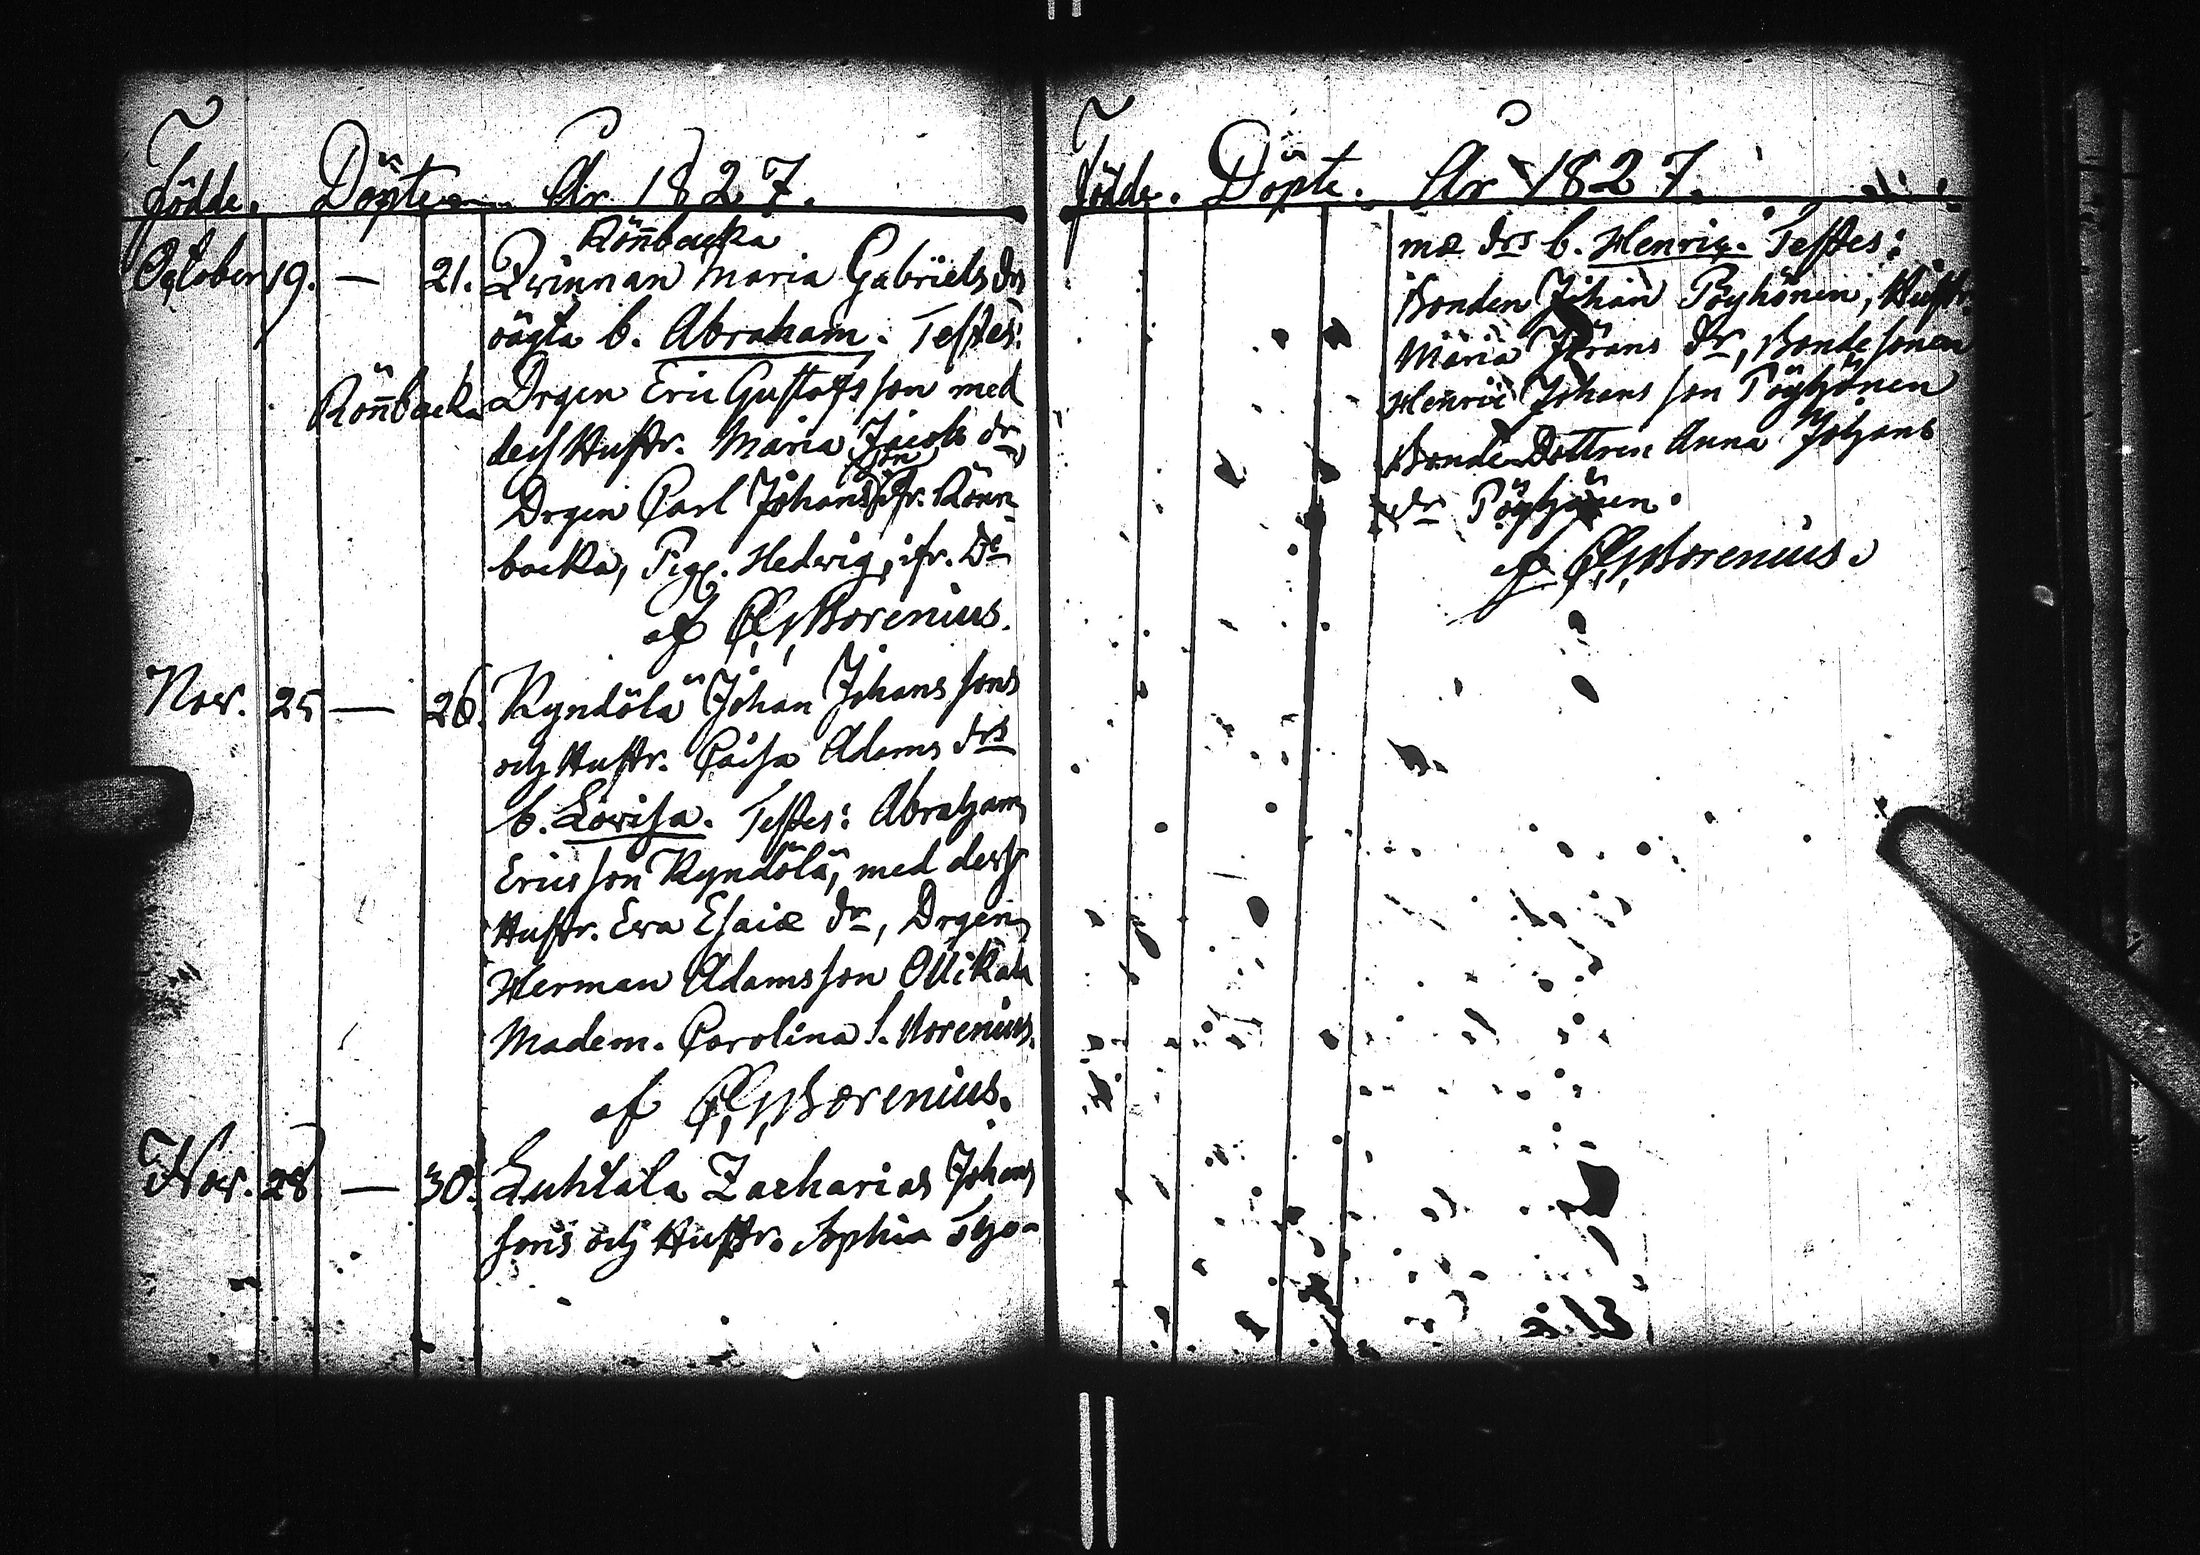 Födde. Döpte År 1827.
Rönnbacka
October 19. — 21. Qvinnan Maria Gabriels drs
oägta b. Abraham. Testes:
Rönnbacka Drgen Eric Gustafsson med
dess Hustr. Maria Jacobs dr,
Drgen Carl Johansson ifr. Rönn-
backa, Pig. Hedwig, ifr. Do
af Borenius.
Nov. 25 — 26. Kyndölä Johan Johanssons
och Hustr. Caisa Adams drs
b. Lovisa. Testes: Abraham
Ericsson Kyndölä, med dess
Hustr. Eva Esaiæ dr, Drgen
Herman Adamsson Ollikala
Madem. Carolina S. Borenius.
af Borenius.
Nov. 28 — 30. Luhtala Zacharias Johans
sons och Hustr. Sophia Tho-
Födde. Döpte. År 1827.
mæ drs b. Henric. Testes:
Bonden Johan Pöyhönen, Hustr.
Maria Jörans dr, Bondesonen
Henric Johansson Pöyhönen
Bonde Dottren Anna Johans
dr Pöyhönen.
af Borenius.